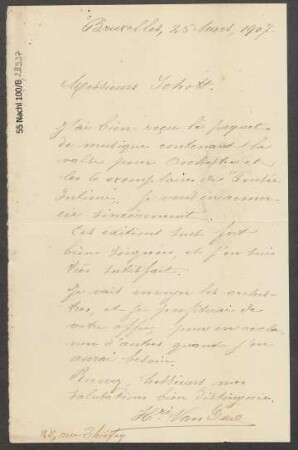 Bruxelles, 25 Mars, 1907.
Messieurs Schott.
J'ai bien reçu le paquet
de musique contenant la
valse pour Orchestre et
les 6 exemplaires de
Intime, je vous en remer-
cie sincèrement.
Ces éditions sont fort
bien soignées, et j'en suis
très satisfait.
Je vais envoyer les orches-
tres, et je profiterai de
votre offre, pour en récla-
mer d'autres quand j'en
aurai besoin.
Recevez, Messieurs, mes
salutations bien distinguées.
Van
55 Nachl 100/B